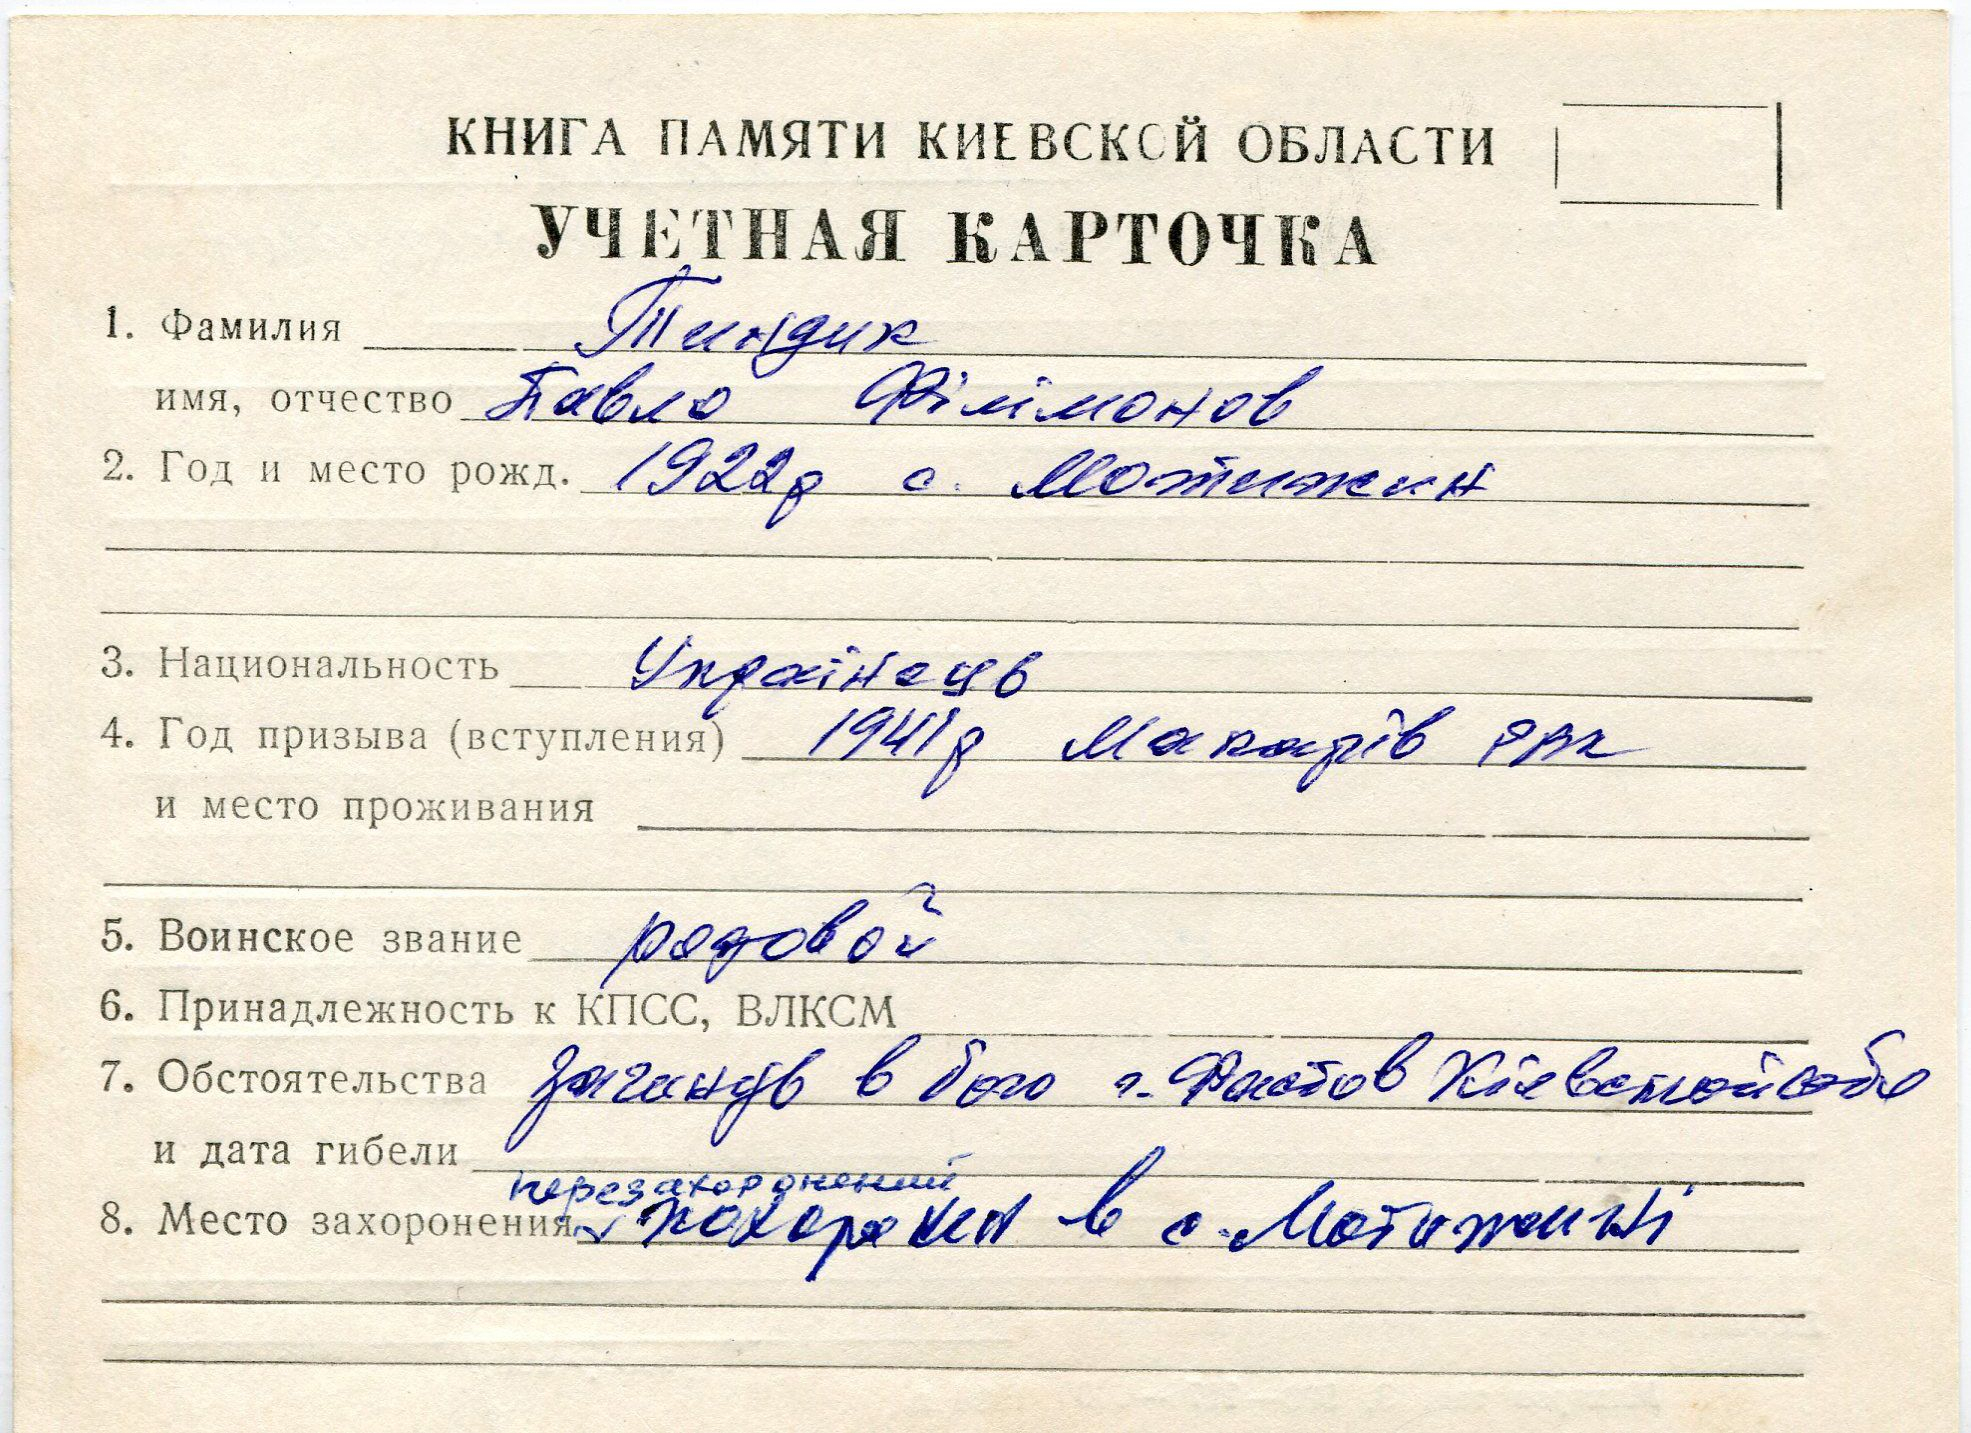 КНИГА ПАМЯТИ КИЕВСКОЙ ОБЛАСТИ
УЧЕТНАЯ КАРТОЧКА
1. Фамилия Тиндик
имя, отчество Павло Філімонов
2. Год и место рожд. 1922р с. Мотижин
3. Национальность Українець
4. Год призыва (вступления) 1941р Макарів РВК
и место проживания
5. Воинское звание рядовой
6. Принадлежность к КПСС, ВЛКСМ
7. Обстоятельства загинув в бою г. Фастов Кієвской обл
и дата гибели
перезахоронений
8. Место захоронения в с. Мотижині